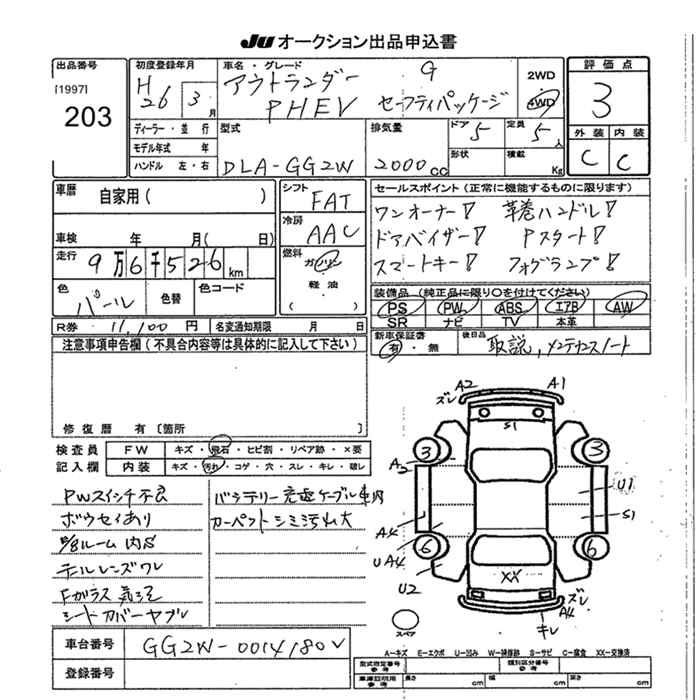 JU オークション出品申込書
出品番号
[1997]
203
初度登録年月
H 26 年 3 月
車名・グレード
アウトランダー G
PHEV セーフティパッケージ
2WD
4WD
評価点
3
外装 内装
C C
ディーラー・並行
モデル年式 年
ハンドル 左・右
型式
DLA-GG2W
排気量
2000 cc
ドア 5
定員 5 人
形状
積載 Kg
車歴 自家用( )
車検 年 月( 日)
走行 9万6千526 km
色 パール 色替
色コード
R券 11,100円
名変通知期限 月 日
シフト FAT
冷房 AAC
燃料
ガソリン
軽油
( )
セールスポイント(正常に機能するものに限ります)
ワンオーナー! 革巻ハンドル!
ドアバイザー! Pスタート!
スマートキー! フォグランプ!
装備品(純正品に限り○を付けてください)
PS PW ABS エアB AW
SR ナビ TV 本革
新車保証書 有・無
後日品 取説,メンテナンスノート
注意事項申告欄(不具合内容等は具体的に記入して下さい)
修復歴 有〔箇所 〕
検査員 FW キズ・飛石・ヒビ割・リペア跡・×要
記入欄 内装 キズ・汚れ・コゲ・穴・スレ・キレ・破レ
PWスイッチ不良
ボウセイあり
ルーム内S
テールレンズワレ
Fガラス
シートカバーヤブレ
バッテリー充電ケーブル車内
カーペットシミ汚れ大
A2 A1
ズレ
S1
3 3
A2
U1
S1
A4
UA4
6 6
U2
XX
ズレ
A4
キレ
スペア
車台番号 GG2W-0014180
登録番号
A-キズ E-エクボ U-凹み W-補修跡 S-サビ C-腐食 XX-交換済
型式指定番号 参考
類別区分番号 参考
車庫証明用 参考
長さ cm 幅 cm 高さ cm